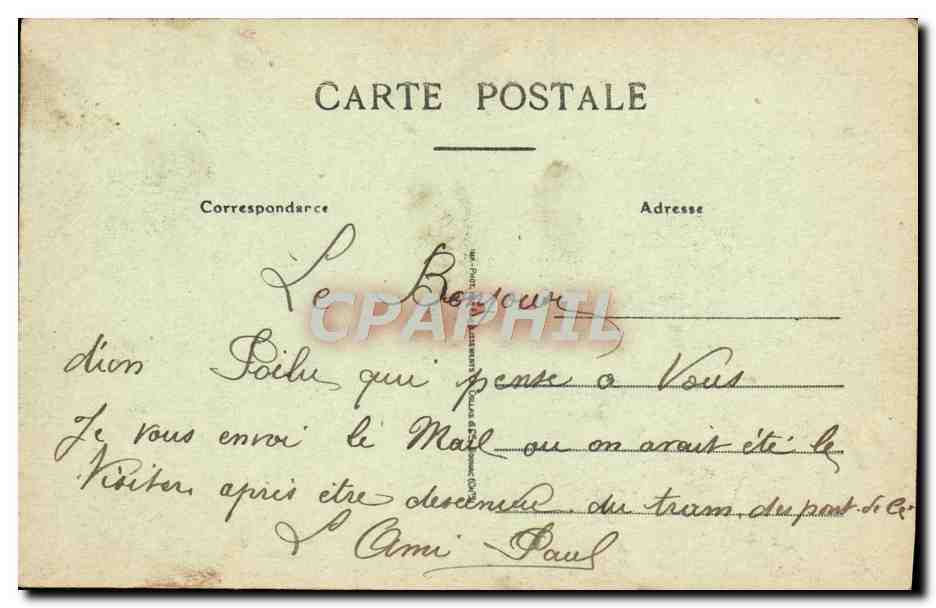 CARTE POSTALE
Correspondance
Adresse
Le Bonjour
CPAPHIL
d'ion Poilu qui pense a Vous
Je vous envoi lé Mail ou on avait été le
Visiter après être descendu du tram des pont de Cé
L'Ami Paul
IMP. - PHOT.